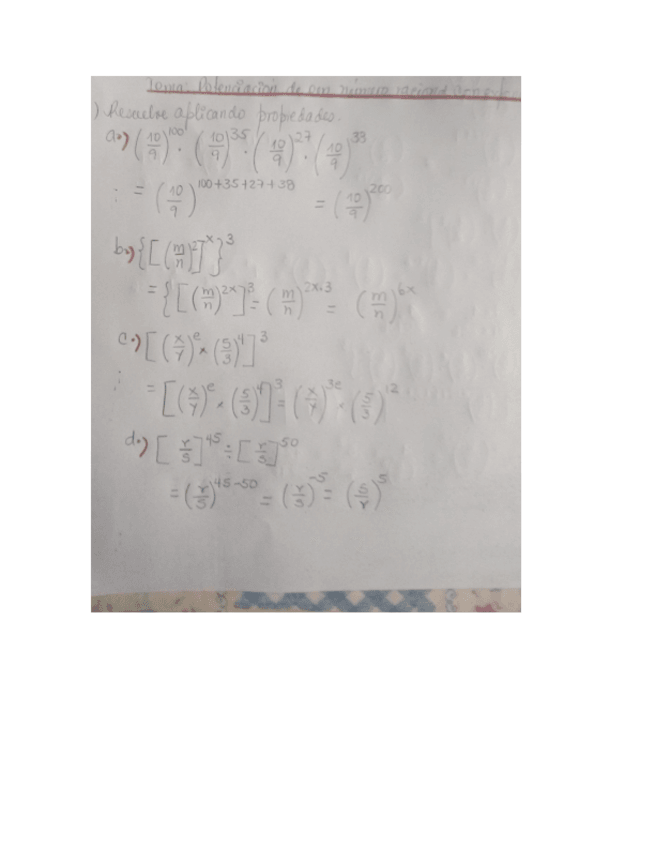 Tema: Potenciación de un número racional con exp
) Resuelve aplicando propiedades.
a.) (10/9)^100 . (10/9)^35 . (10/9)^27 . (10/9)^38
: = (10/9)^100+35+27+38 = (10/9)^200
b.) {[(m/n)^2]^x}^3
= {[(m/n)^2x]^3 = (m/n)^2x.3 = (m/n)^6x
c.) [(x/y)^e × (5/3)^4]^3
∴ = [(x/y)^e × (5/3)^4]^3 = (x/y)^3e × (5/3)^12
d.) [r/s]^45 ÷ [r/s]^50
= (r/s)^45-50 = (r/s)^-5 = (s/r)^5